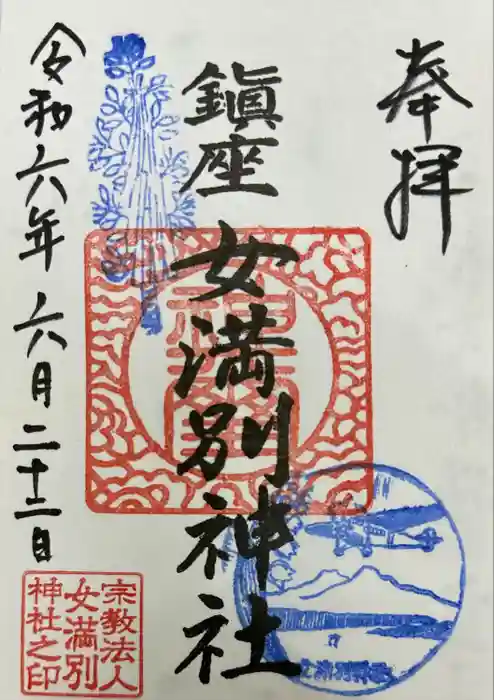 奉拝
鎮座
女満別神社
令和六年六月二十二日
宗教法人
女満別
神社之印